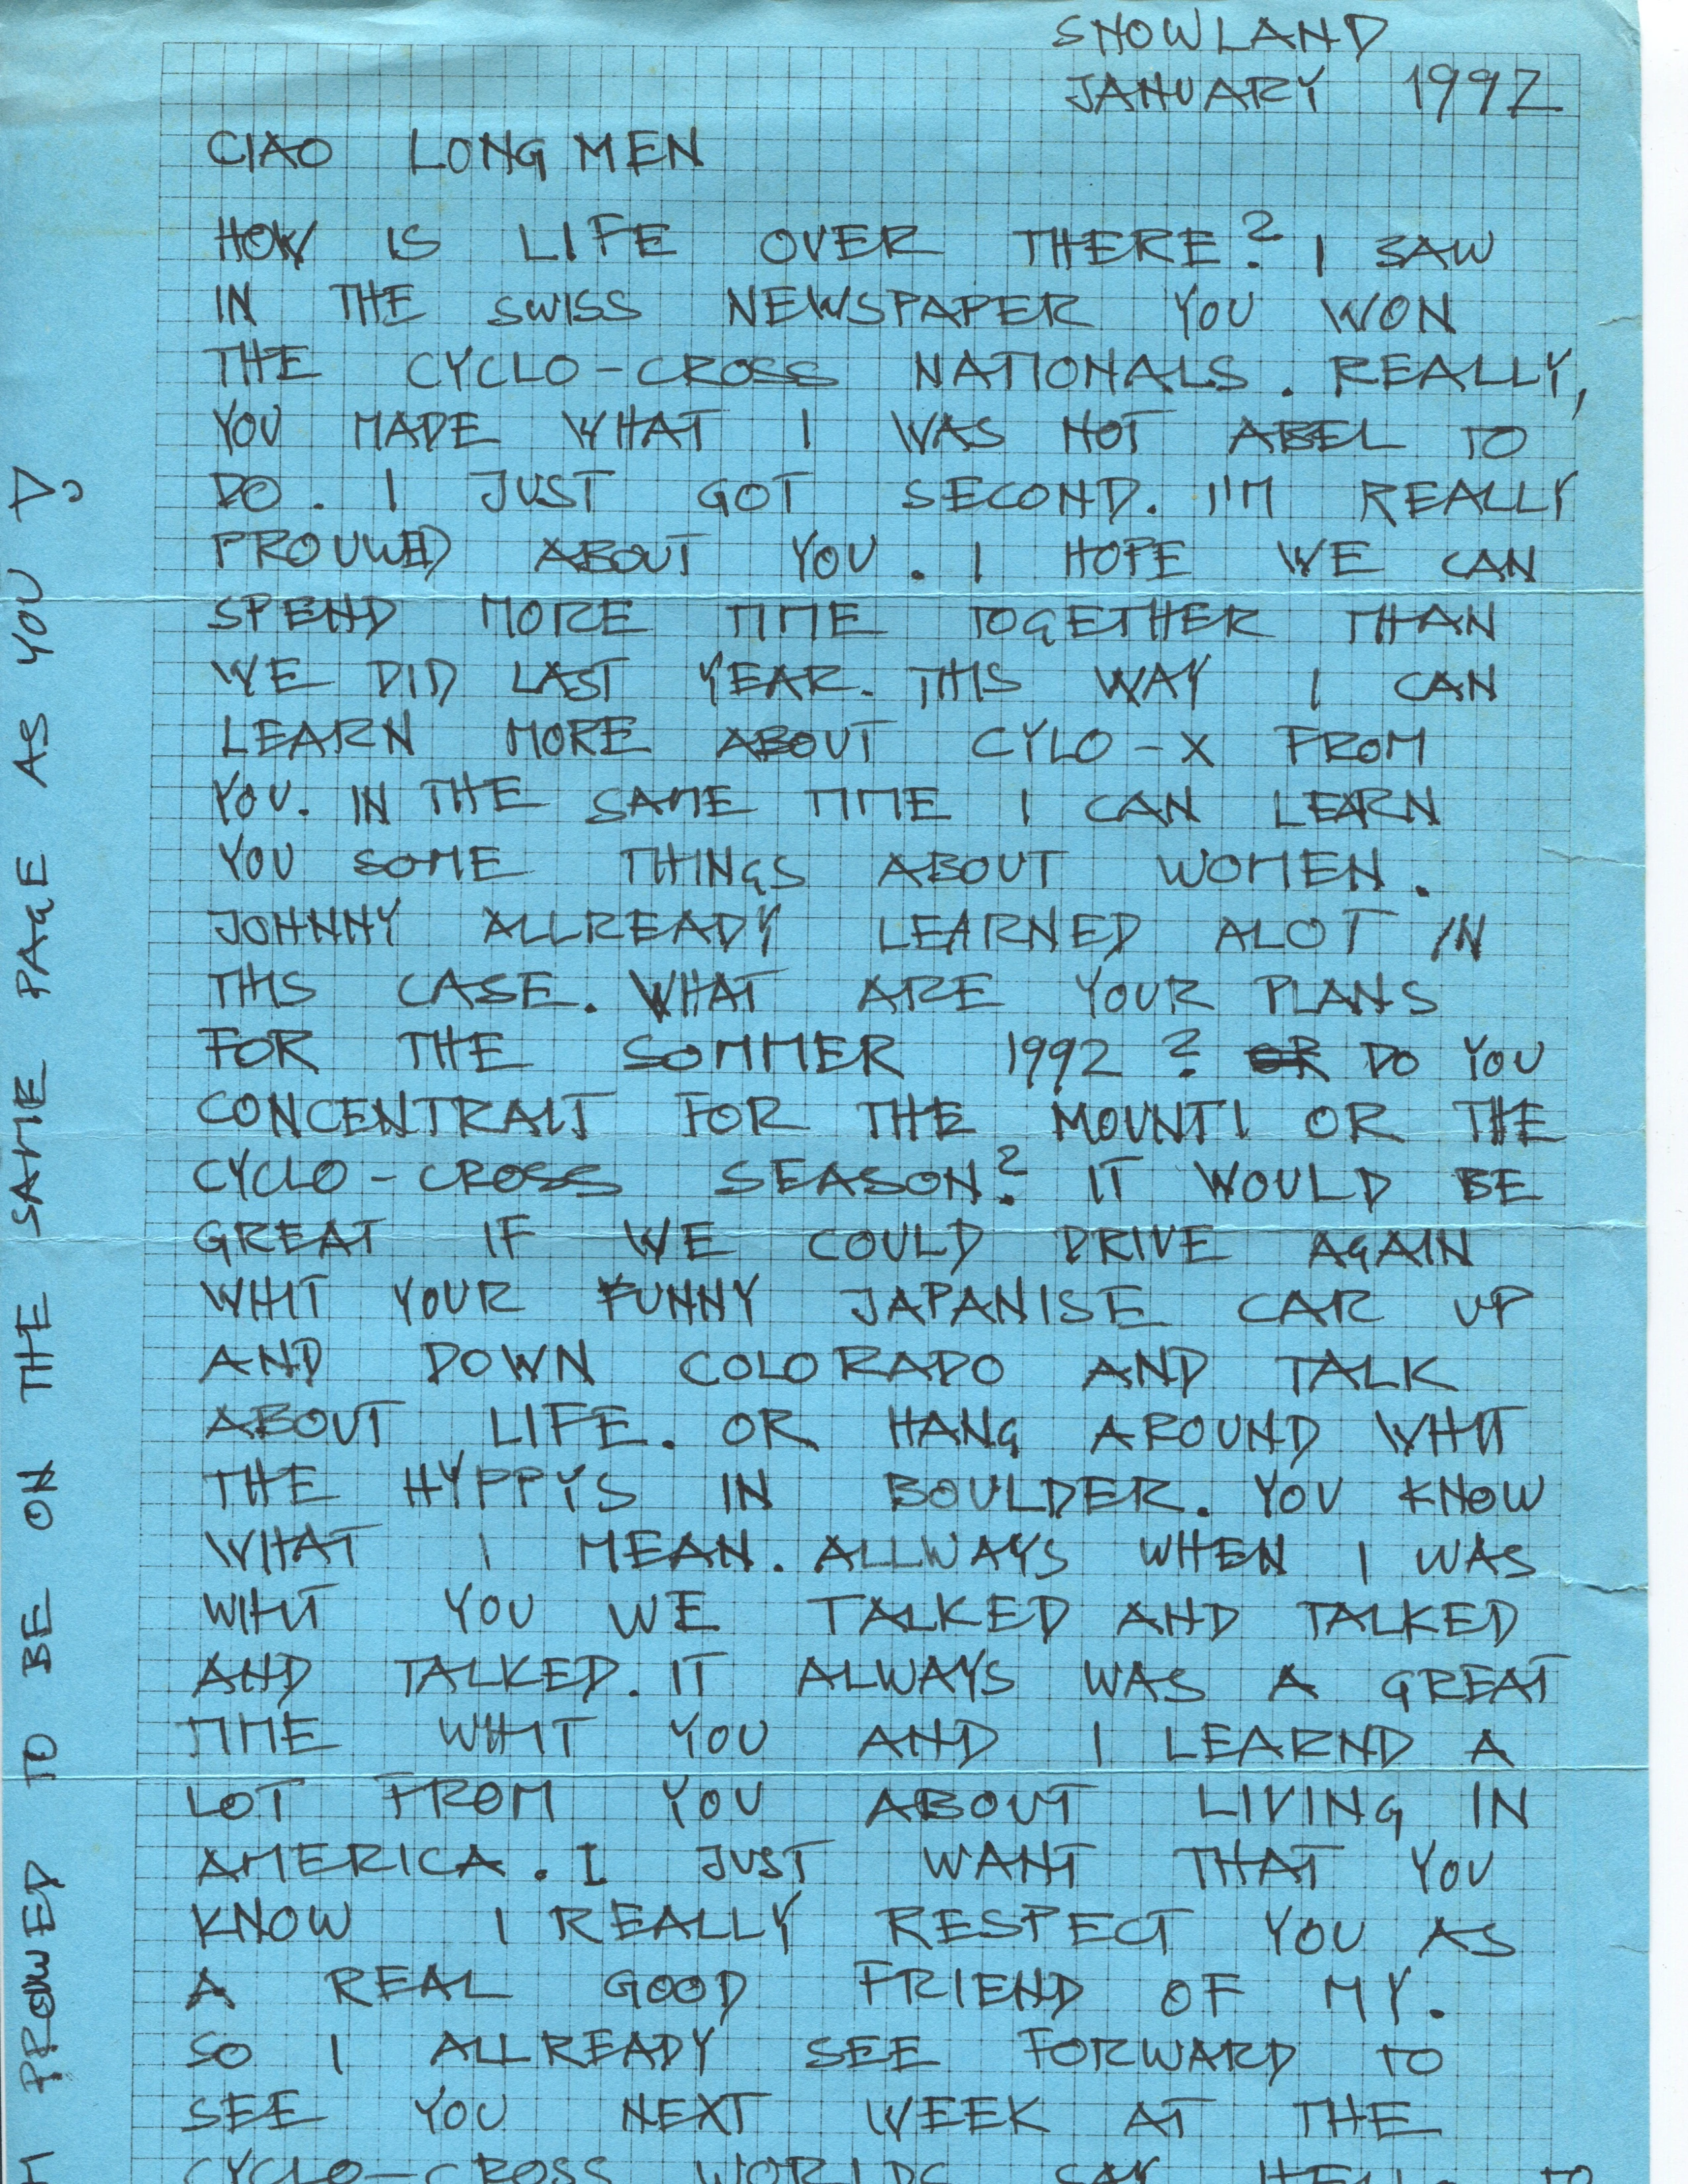 SNOWLAND
JANUARY 1992
CIAO LONG MEN
HOW IS LIFE OVER THERE? I SAW
IN THE SWISS NEWSPAPER YOU WON
THE CYCLO-CROSS NATIONALS. REALLY,
YOU MADE WHAT I WAS NOT ABEL TO
DO. I JUST GOT SECOND. I'M REALLY
PROUWED ABOUT YOU. I HOPE WE CAN
SPEND MORE TIME TOGETHER THAN
WE DID LAST YEAR. THIS WAY I CAN
LEARN MORE ABOUT CYLO-X FROM
YOU. IN THE SAME TIME I CAN LEARN
YOU SOME THINGS ABOUT WOMEN.
JOHNNY ALLREADY LEARNED ALOT IN
THIS CASE. WHAT ARE YOUR PLANS
FOR THE SOMMER 1992? OR DO YOU
CONCENTRAIT FOR THE MOUNTI OR THE
CYCLO-CROSS SEASON? IT WOULD BE
GREAT IF WE COULD DRIVE AGAIN
WHIT YOUR FUNNY JAPANISE CAR UP
AND DOWN COLORADO AND TALK
ABOUT LIFE. OR HANG AROUND WHIT
THE HYPPYS IN BOULDER. YOU KNOW
WHAT I MEAN. ALLWAYS WHEN I WAS
WIHT YOU WE TALKED AND TALKED
AND TALKED. IT ALWAYS WAS A GREAT
TIME WHIT YOU AND I LEARND A
LOT FROM YOU ABOUT LIVING IN
AMERICA. I JUST WANT THAT YOU
KNOW I REALLY RESPECT YOU AS
A REAL GOOD FRIEND OF MY.
SO I ALLREADY SEE FORWARD TO
SEE YOU NEXT WEEK AT THE
CYCLO-CROSS WORLDS SAY HELLO TO
PROWED TO BE ON THE SAME PAGE AS YOU